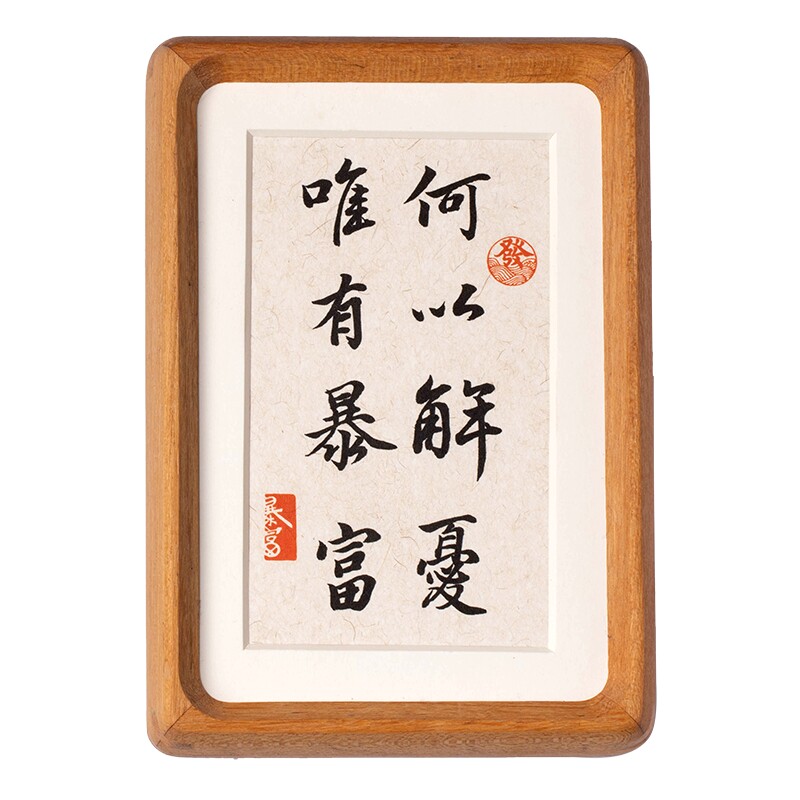 何以解憂
唯有暴富
發
暴富